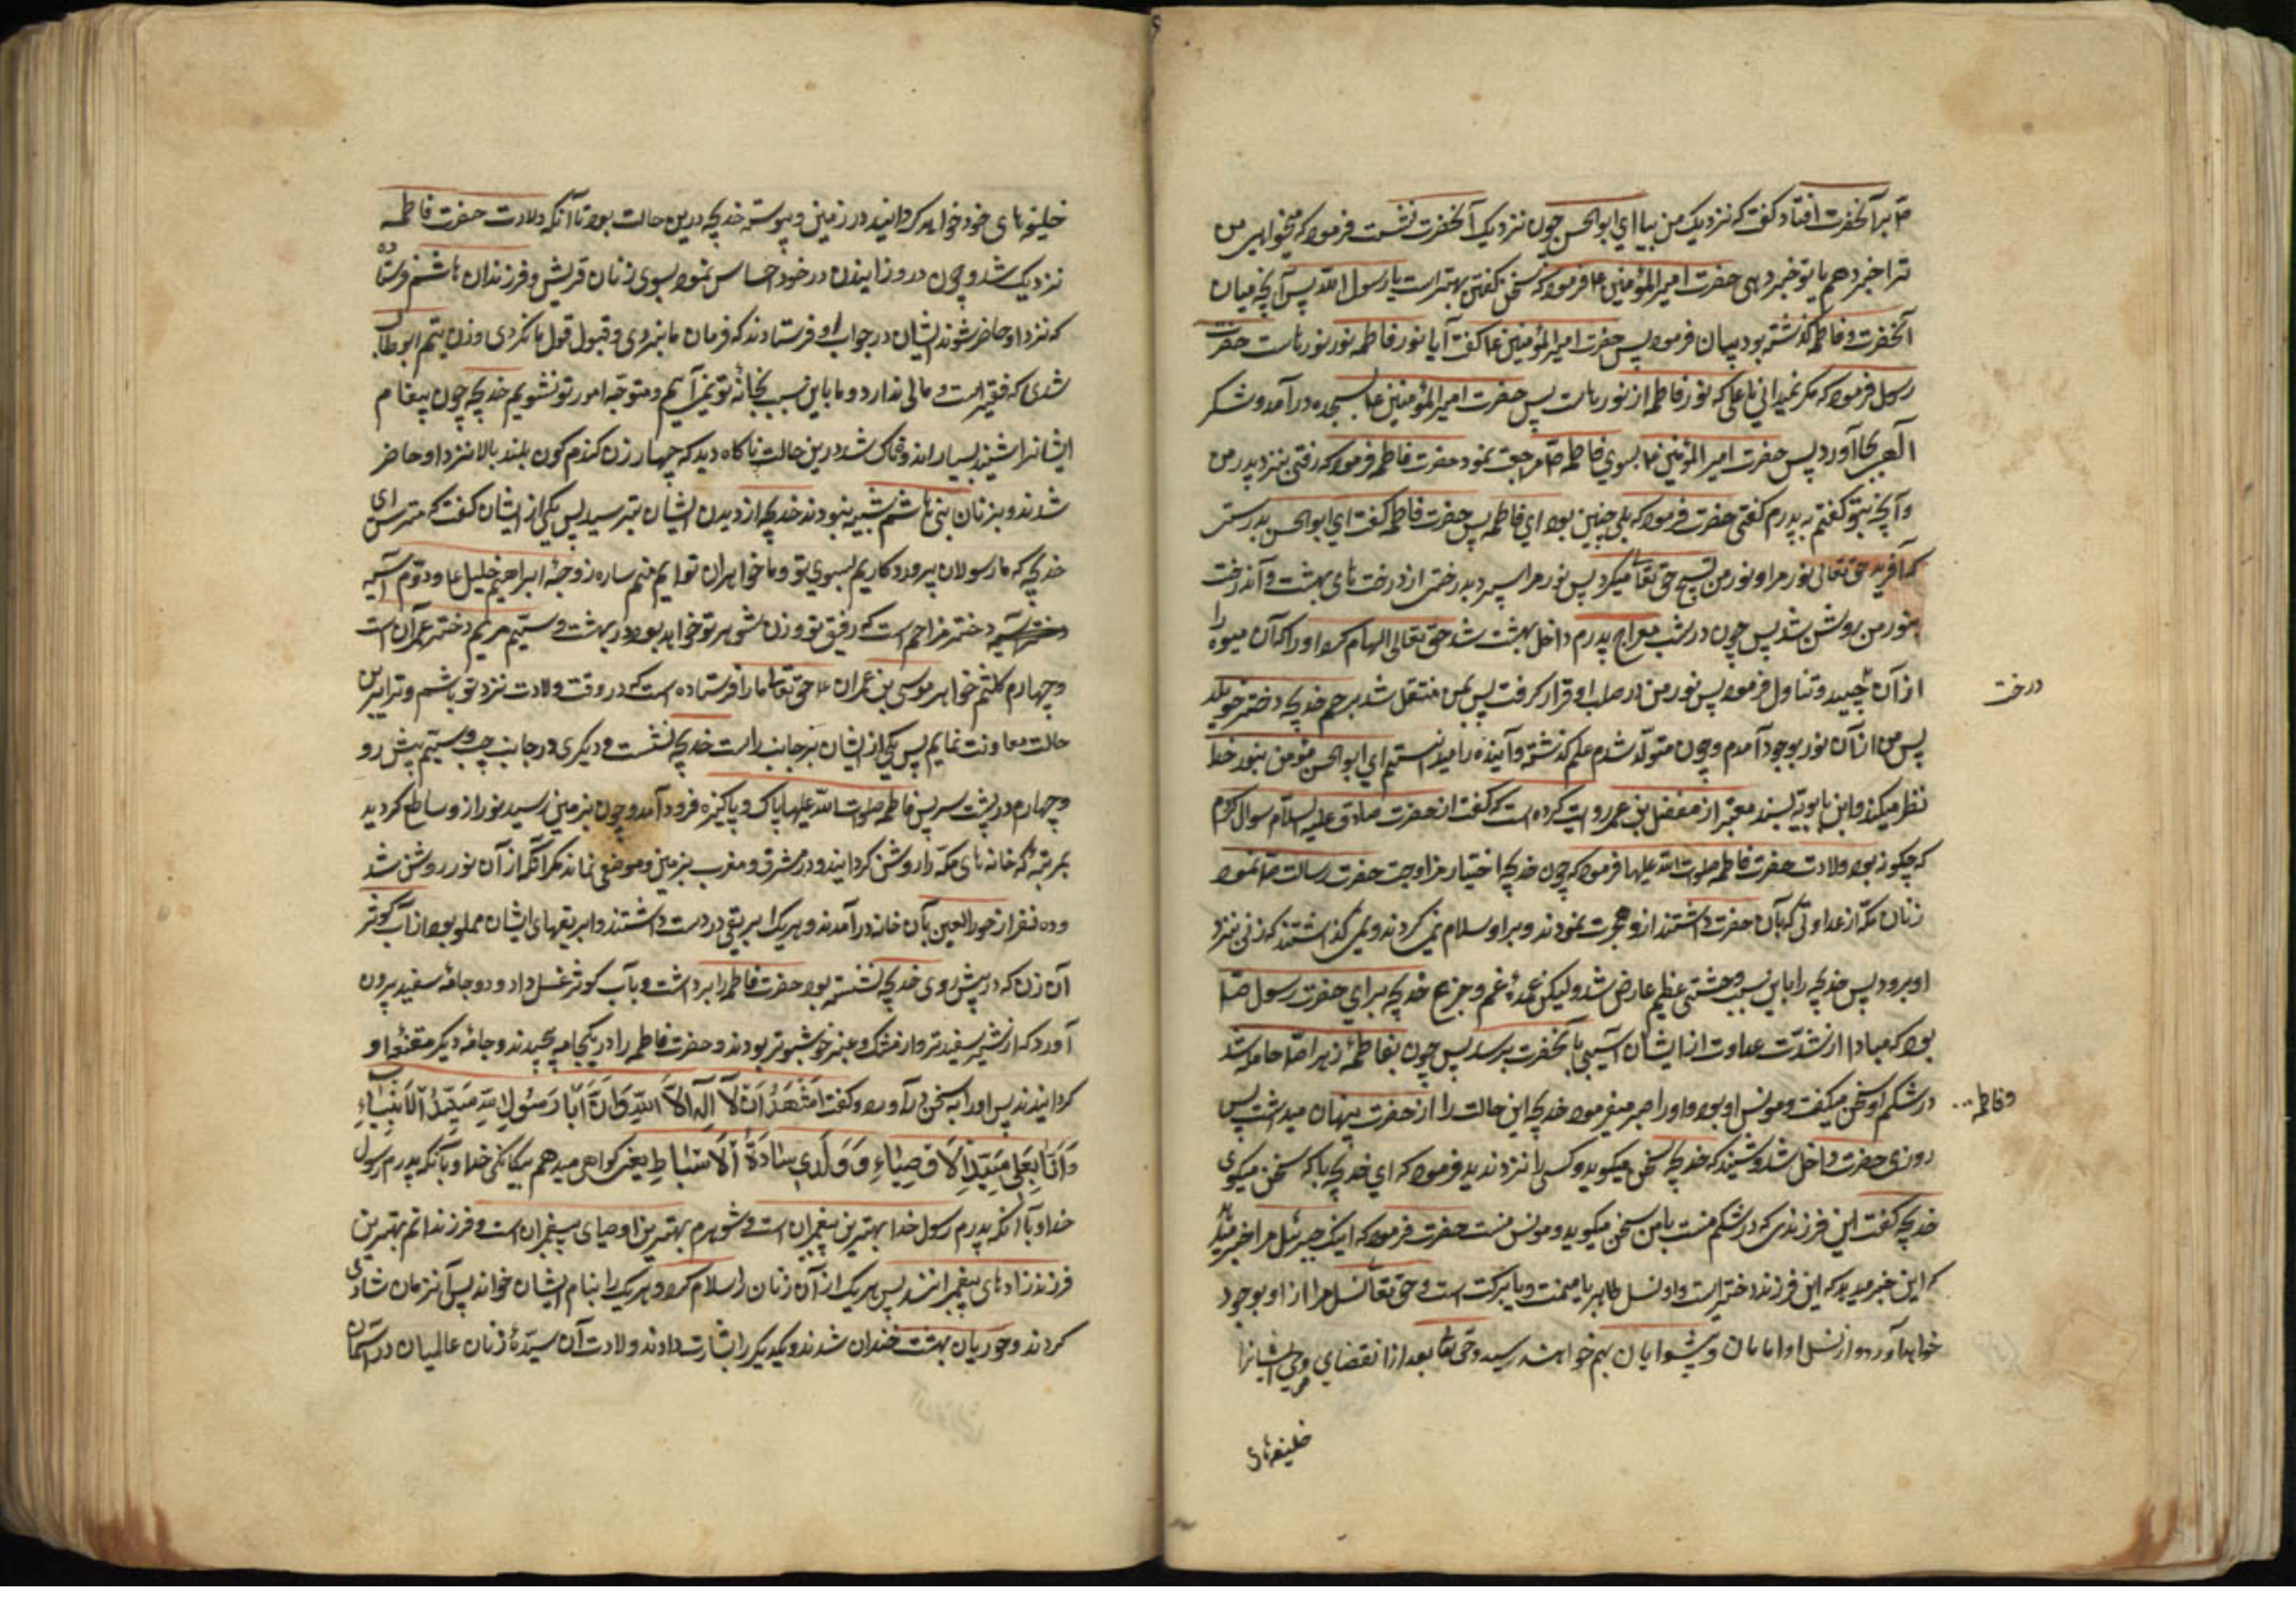 ص بر آنحضرت افتاد گفت که نزدیک من بیا ای ابو الحسن چون نزدیک آنحضرت نشست فرمود که میخواهی من
ترا خبر دهم یا تو خبر دهی حضرت امیر المؤمنین ع فرمود که سخن گفتن بهتر است یا رسول الله پس آنچه میان
آنحضرت و فاطمه گذشته بود بیان فرمود پس حضرت امیر المؤمنین ع گفت آیا نور فاطمه نور نور ماست حضرت
رسول فرمود که مگر نمیدانی یا علی که نور فاطمه از نور ماست پس حضرت امیر المؤمنین ع بسجده درآمد و شکر
الهی بجا آورد پس حضرت امیر المؤمنین ع بسوی فاطمه ص مراجعت نمود حضرت فاطمه فرمود که رفتی بنزد پدر من
و آنچه بتو گفتم به پدرم گفتی حضرت فرمود که بلی چنین بود ای فاطمه پس حضرت فاطمه گفت ای ابو الحسن بدرستی
که آفرید حق تعالی نور مرا و نور من تسبیح حق تعالی میکرد پس نور مرا سپرد بدرختی از درخت های بهشت و آندرخت
بنور من روشن شد پس چون در شب معراج پدرم داخل بهشت شد حق تعالی الهام کرد او را که آن میوه را
از آن بچیند و تناول فرمود پس نور من در صلب او قرار گرفت پس بمن منتقل شد برحم خدیجه دختر خویلد
درخت
پس من از آن نور بوجود آمدم و چون متولد شدم علم گذشته و آینده را میدانستم ای ابو الحسن مؤمن بنور خدا
نظر میکند و ابن بابویه بسند معتبر از مفضل بن عمر روایت کرده است که گفت از حضرت صادق علیه السلام سوال کردم
که چگونه بود ولادت حضرت فاطمه صلوات الله علیها فرمود که چون خدیجه اختیار مزاوجت حضرت رسالت ص نمود
زنان مکه از عداوتی که بآن حضرت داشتند ازو هجرت نمودند و بر او سلام نمی کردند و نمی گذاشتند که زنی بنزد
او برود پس خدیجه را باین سبب وحشتی عظیم عارض شد و لیکن عمدهٔ غم و جزع خدیجه برای حضرت رسول ص
بود که مبادا از شدت عداوت از ایشان آسیبی بآنحضرت برسد پس چون بفاطمهٔ زهرا ص حامله شد
در شکم او سخن میگفت و مونس او بود و او را صبر میفرمود خدیجه این حالت را از حضرت پنهان میداشت پس
و فاطمه
روزی حضرت داخل شد و شنید که خدیجه سخن میگوید و کسی را نزد ندید فرمود که ای خدیجه با که سخن میگوی
خدیجه گفت این فرزندی که در شکم منست با من سخن میگوید و مونس منست حضرت فرمود که اینک جبرئیل مرا خبر میدهد
که این خبر میدهد که این فرزند دختر است و او نسل طاهر با میمنت و با برکت است و حق تعالی نسل مرا از او بوجود
خواهد آورد و از نسل او امامان و پیشوایان بهم خواهند رسید و حق تعالی بعد از انقضای وحی ایشانرا
خلیفهای
خلیفه های خود خواهد گردانید در زمین و پیوسته خدیجه درین حالت بود تا آنکه ولادت حضرت فاطمه
نزدیک شد و چون درد زاییدن در خود احساس نمود بسوی زنان قریش و فرزندان هاشم فرستاد
که نزد او حاضر شوند ایشان در جواب او فرستادند که فرمان ما نبردی و قبول قول ما نکردی و زن یتیم ابو طالب
شدی که فقیر است و مالی ندارد و ما باین سبب بخانهٔ تو نمی آییم و متوجه امور تو نشویم خدیجه چون پیغام
ایشانرا شنید بسیار اندوهناک شد درین حالت ناگاه دید که چهار زن گندم گون بلند بالا نزد او حاضر
شدند و بزنان بنی هاشم شبیه بودند خدیجه از دیدن ایشان بترسید پس یکی از ایشان گفت که مترس ای
خدیجه که ما رسولان پروردگاریم بسوی تو و ما خواهران توایم منم ساره زوجهٔ ابراهیم خلیل ع و دوّم آسیه
دختر مزاحم است که رفیق تو و زن شوهر تو خواهد بود در بهشت و سیّم مریم دختر عمران است
و چهارم کلثم خواهر موسی بن عمران ع حق تعالی ما را فرستاده است که در وقت ولادت نزد تو باشیم و ترا برین
حالت معاونت نمایم پس یکی از ایشان بر جانب راست خدیجه نشست و دیگری در جانب چپ و سیّم پیش رو
و چهارم در پشت سر پس فاطمه صلوات الله علیها پاک و پاکیزه فرود آمد و چون بزمین رسید نور از و ساطع گردید
بمرتبهٔ که خانه های مکه را روشن گردانید و در مشرق و مغرب زمین موضعی نماند مگر آنکه از آن نور روشن شد
و ده نفر از حور العین بآن خانه درآمدند و هریک ابریقی در دست داشتند و ابریقهای ایشان مملو بود از آب کوثر
آن زن که در پیش روی خدیجه نشسته بود حضرت فاطمه را برداشت و بآب کوثر غسل داد و دو جامهٔ سفید بیرون
آورد که از شیر سفیدتر و از مشک و عنبر خوشبوتر بودند و حضرت فاطمه را در یکجامه پیچیدند و جامهٔ دیگر مقنعهٔ او
گردانیدند پس او را بسخن درآورد و گفت اَشْهَدُ اَنْ لَا اِلٰهَ اِلَّا اللهُ وَ اَنَّ اَبِی رَسُولُ اللهِ سَیِّدُ الْاَنْبِیَاءِ
وَ اَنَّ بَعْلِی سَیِّدُ الْاَوْصِیَاءِ وَ وَلَدِی سَادَةُ الْاَسْبَاطِ یعنی گواهی میدهم بیگانگی خدا و بآنکه پدرم رسول
خدا و بآنکه پدرم رسول خدا بهترین پیغمبران است و شوهرم بهترین اوصیای پیغمبران است و فرزندانم بهترین
فرزندزاد های پیغمبرانند پس بر یک از آن زنان سلام کرد و هریک را بنام ایشان خواند پس آنزمان شادی
کردند و حوریان بهشت خندان شدند و یکدیگر را بشارت دادند و ولادت آن سیّدهٔ زنان عالمیان در آسمان